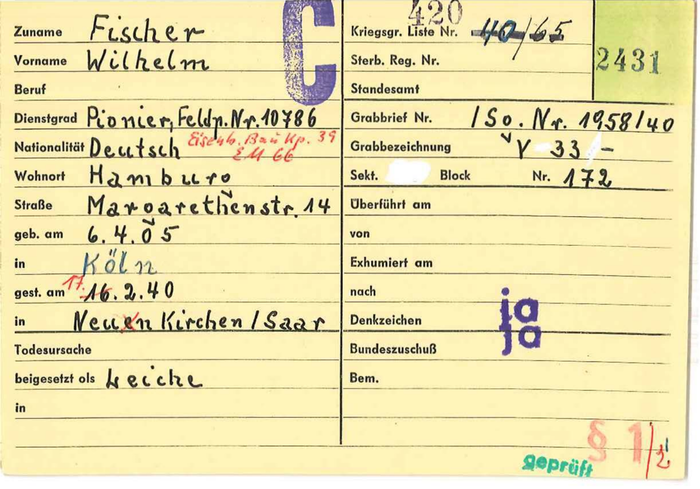 Zuname Fischer
Vorname Wilhelm
Beruf
Dienstgrad Pionier, Feldp. Nr. 10786
Eisenb. Bau Kp. 39
Nationalität Deutsch EM 66
Wohnort Hamburg
Straße Margarethenstr. 14
geb. am 6.4.05
in Köln
gest. am 17. 16.2.40
in Neuenkirchen / Saar
Todesursache
beigesetzt als Leiche
in
C
420
Kriegsgr. Liste Nr. 40/65
Sterb. Reg. Nr.
2431
Standesamt
Grabbrief Nr. /So. Nr. 1958/40
Grabbezeichnung V 33 -
Sekt. Block Nr. 172
Überführt am
von
Exhumiert am
nach
ja
Denkzeichen
ja
Bundeszuschuß
Bem.
§ 1/2
geprüft